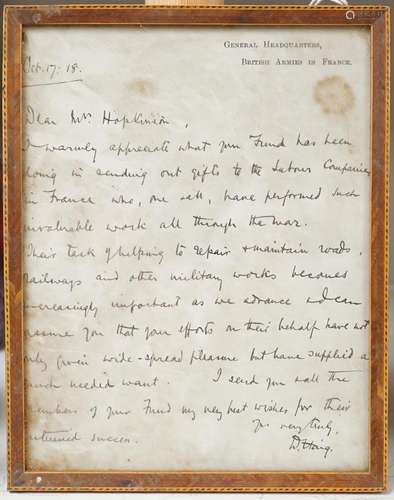 GENERAL HEADQUARTERS,
BRITISH ARMIES IN FRANCE.
Oct. 17. 18.
Dear Mr. Hopkinson,
I warmly appreciate what your Fund has been
doing in sending out gifts to the Labour Companies
in France who, one & all, have performed such
invaluable work all through the war.
Their task of helping to repair & maintain roads,
railways and other military works becomes
increasingly important as we advance and I can
assure you that your efforts on their behalf have not
only given wide-spread pleasure but have supplied a
much needed want. I send you & all the
members of your Fund my very best wishes for their
continued success.
Yrs very truly,
D. Haig.